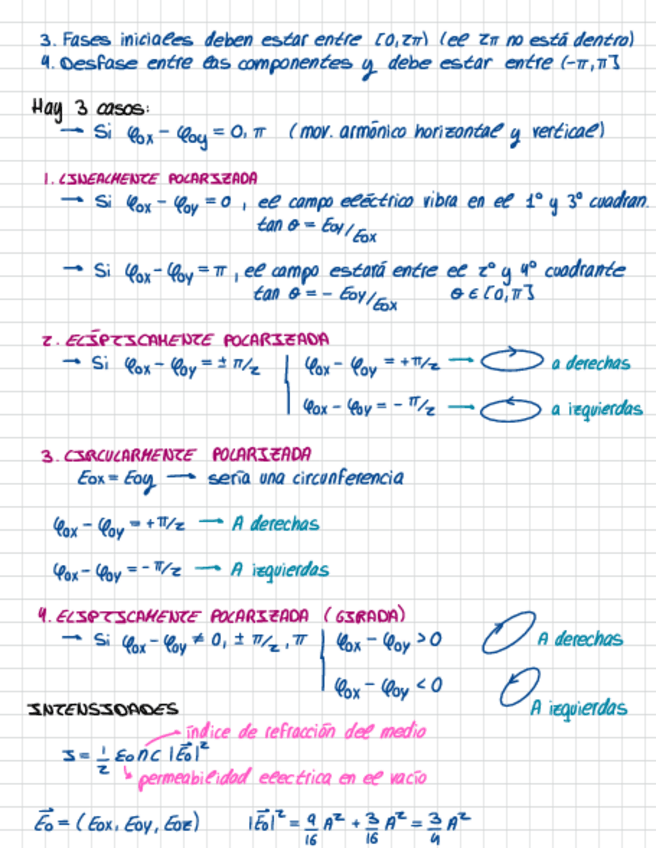 3. Fases iniciales deben estar entre [0, 2π) (el 2π no está dentro)
4. Desfase entre las componentes y debe estar entre (-π, π]
Hay 3 casos:
→ Si φox - φoy = 0, π (mov. armónico horizontal y vertical)
1. LINEALMENTE POLARIZADA
→ Si φox - φoy = 0, el campo eléctrico vibra en el 1º y 3º cuadran.
tan θ = Eoy/Eox
→ Si φox - φoy = π, el campo estará entre el 2º y 4º cuadrante
tan θ = - Eoy/Eox θ ∈ [0, π]
2. ELÍPTICAMENTE POLARIZADA
→ Si φox - φoy = ± π/2 | φox - φoy = +π/2 → a derechas
φox - φoy = - π/2 → a izquierdas
3. CIRCULARMENTE POLARIZADA
Eox = Eoy → sería una circunferencia
φox - φoy = +π/2 → A derechas
φox - φoy = -π/2 → A izquierdas
4. ELIPTICAMENTE POLARIZADA (GIRADA)
→ Si φox - φoy ≠ 0, ± π/2, π | φox - φoy > 0 A derechas
φox - φoy < 0 A izquierdas
INTENSIDADES
índice de refracción del medio
I = 1/2 ε0 n c |E⃗0|²
permeabilidad electrica en el vacío
E⃗0 = (Eox, Eoy, Eoz) |E⃗0|² = 9/16 A² + 3/16 A² = 3/4 A²